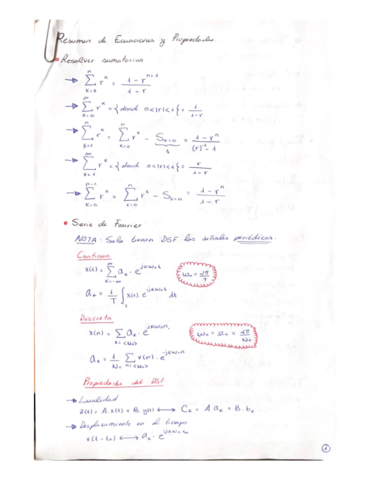 Resumen de Ecuaciones y Propiedades
• Resolver sumatorias
→ ∑_{k=0}^{n} r^k = (1 - r^{n+1}) / (1 - r)
→ ∑_{k=0}^{∞} r^k = {donde 0<|r|<1} = 1 / (1 - r)
→ ∑_{k=1}^{n} r^k = ∑_{k=0}^{n} r^k - S_{k=0} = (1 - r^n) / ((r)^{-1} - 1)
→ ∑_{k=1}^{∞} r^k = {donde 0<|r|<1} = r / (1 - r)
→ ∑_{k=0}^{n-1} r^k = ∑_{k=0}^{n} r^k - S = (1 - r^n) / (1 - r)
• Serie de Fourier
NOTA: Solo tienen DSF las señales periódicas.
Continua
x(t) = ∑_{k=-∞}^{∞} a_k · e^{jkω₀t}
ω₀ = 2π/T
a_k = 1/T ∫_T x(t) · e^{-jkω₀t} dt
Discreta
x(n) = ∑_{k=<N₀>} a_k · e^{jkω₀n}
ω₀ = Ω₀ = 2π/N₀
a_k = 1/N₀ ∑_{n=<N₀>} x(n) · e^{-jkω₀n}
Propiedades del DSF
→ Linealidad
z(t) = A·x(t) + B·y(t) ⟷ C_k = A·a_k + B·b_k
→ Desplazamiento en el tiempo
x(t - t₀) ⟷ a_k · e^{-jkω₀t₀}
1